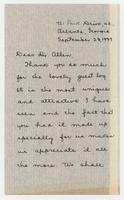 Park Drive, N.E.
Atlanta, Georgia
September 29, 1937
Dear Mr. Allen:
Thank you so much
for the lovely guest book.
It is the most unique
and attractive I have
seen and the fact that
you had it made up
specially for us makes
us appreciate it all
the more. We shall